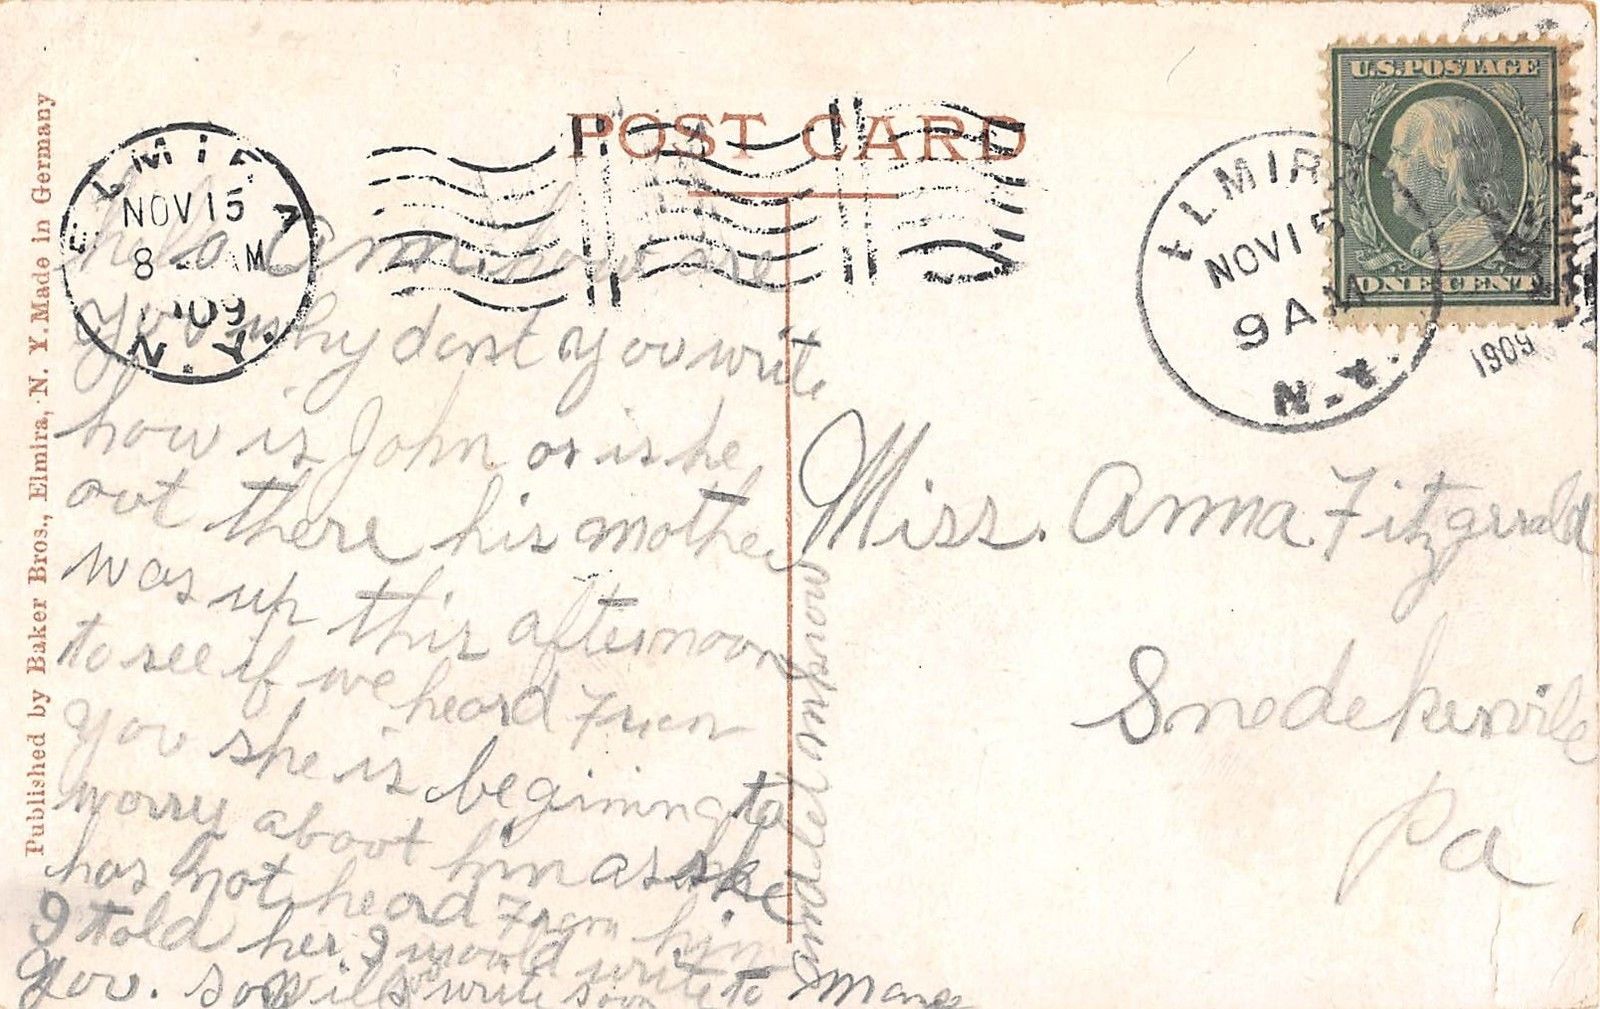 POST CARD
Published by Baker Bros., Elmira, N. Y. Made in Germany
ELMIRA
NOV 15
8 AM
1909
N.Y.
ELMIRA
NOV 15
9 AM
N.Y.
1909
U.S. POSTAGE
ONE CENT
hello Ann how are
you why dont you write
how is John or is he
out there his mother
was up this afternoon
to see if we heard From
you she is begining to
worry about him as she
has not heard From him
I told her I would write to
you. so will write soon
and let em know
Miss. Anna. Fitzgerald
Snedekerville
Pa